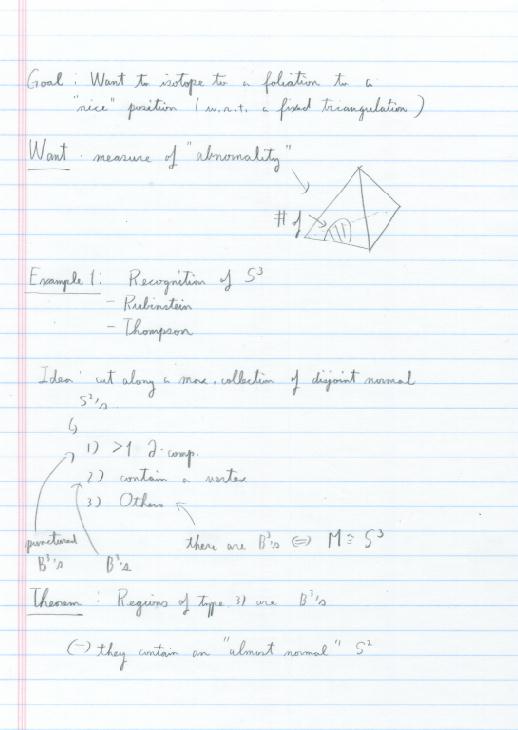 Goal : Want to isotope to a foliation to a
"nice" position (w.r.t. a fixed triangulation)
Want : measure of "abnormality"
# of
Example 1: Recognition of S³
- Rubinstein
- Thompson
Idea : cut along a max. collection of disjoint normal
S²'s.
1) >1 ∂-comp.
2) contain a vertex
3) Others
punctured
B³'s
B³'s
there are B³'s ⇔ M ≅ S³
Theorem : Regions of type 3) are B³'s
(-) they contain an "almost normal" S²